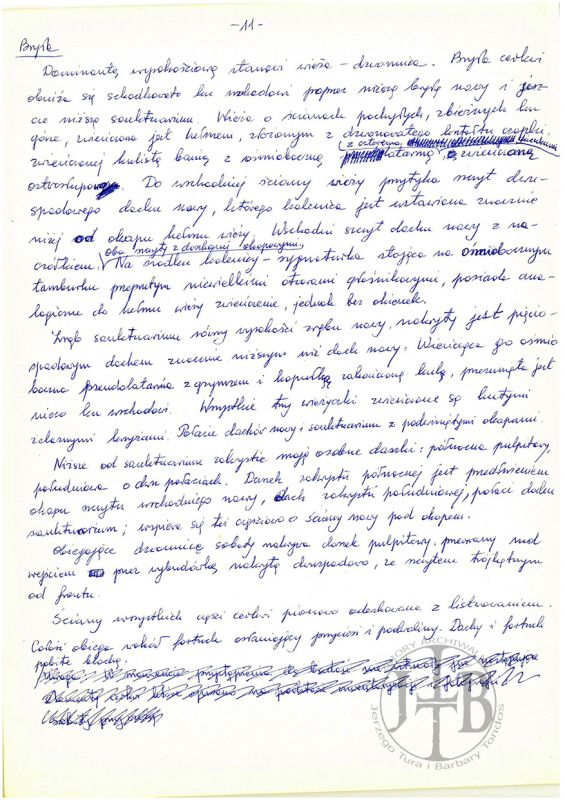 -11-
Bryła
Dominantą wysokościową stanowi wieża - dzwonnica. Bryła cerkwi
obniża się schodkowo ku wschodowi poprzez niższą bryłę nawy i jesz-
cze niższe sanktuarium. Wieża o ścianach pochyłych, zbieżnych ku
górze, zwieńczona jest hełmem, złożonym z dzwonowatego kształtu czapki,
zwieńczonej kulistą banią z ośmioboczną latarnią, zwieńczoną
(z czterema
ostrosłupową. Do wschodniej ściany wieży przytyka szczyt dwu-
spadowego dachu nawy, którego kalenica jest ustawiona znacznie
niżej od okapu hełmu wieży. Wschodni szczyt dachu nawy z na-
oba szczyty z deskami okapowymi.
czółkiem. Na środku kalenicy - sygnaturka stojąca na ośmiobocznym
tamburku przeprutym niewielkimi otworami głośnikowymi, posiada ana-
logiczne do hełmu wieży zwieńczenie, jednak bez okienek.
Zrąb sanktuarium równy wysokości zrębu nawy, nakryty jest pięcio-
spadowym dachem znacznie niższym niż dach nawy. Wieńcząca go ośmio
boczna pseudolatarnia z gzymsem i kopułką zakończoną kulą, przesunięta jest
nieco ku wschodowi. Wszystkie trzy wieżyczki zwieńczone są kutymi
żelaznymi krzyżami. Połacie dachów nawy i sanktuarium z podciągniętymi okapami.
Niższe od sanktuarium zakrystie mają osobne daszki: północna pulpitowy,
południowa o dwu połaciach. Daszek zakrystii północnej jest przedłużeniem
okapu szczytu wschodniego nawy, dach zakrystii południowej, połaci dachu
sanktuarium; wspiera się też częściowo o ściany nawy pod okapem.
Obiegające dzwonnicę soboty nakrywa daszek pulpitowy, przerwany nad
wejściem przez wybudówkę nakrytą dwuspadowo, ze szczytem trójkątnym
od frontu.
Ściany wszystkich części cerkwi pionowo odeskowane z listwowaniem.
Całość obiega wokół fartuch osłaniający przyciesi i podwaliny. Dachy i fartuch
pobite blachą.
TWORY ARCHIWALNE
JTB
Jerzego Tura i Barbary Tondos